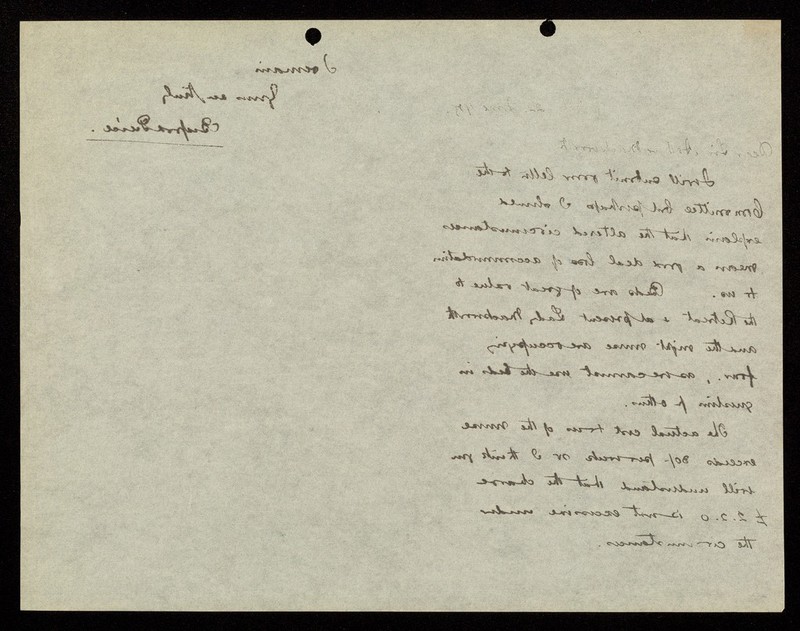 I will submit your letter to the
Committee but perhaps I should
explain that the altered circumstances
mean a good deal loss of accommodation
to us. Beds are of great value to
the Retreat & at present Lady Mackworth
and the night nurse are occupying
four, as we cannot use the beds in
question for others.
The actual cost to us of the nurse
exceeds 30/- per week so I think you
will understand that the charge
£2.2.0 is not excessive under
the circumstances.
I remain
Yours very truly